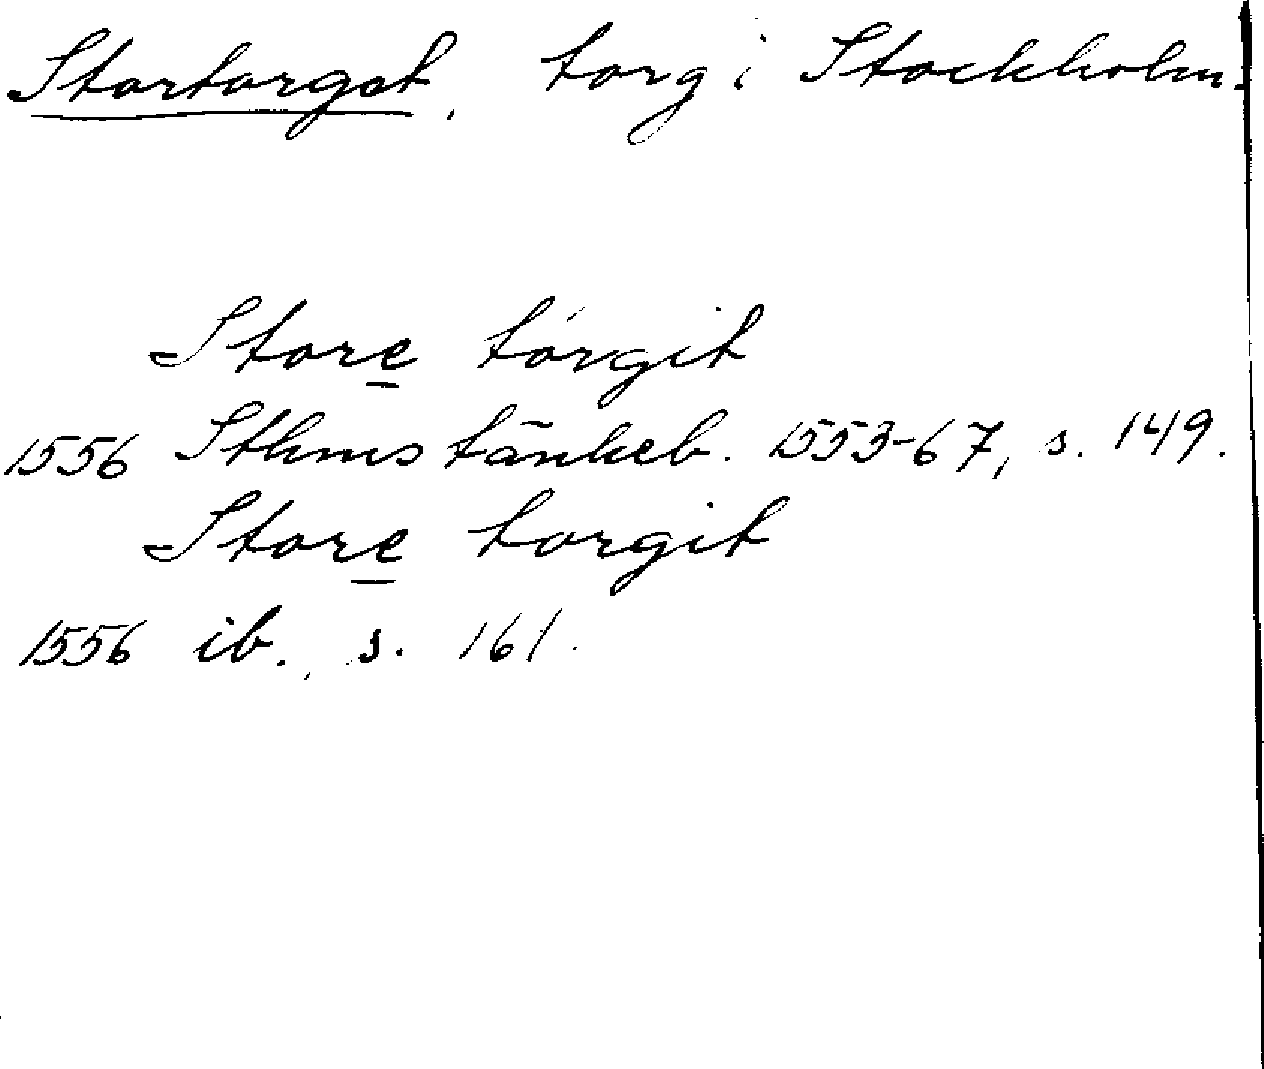 Stortorget, torg i Stockholm.
Store torgit
1556 Sthms tänkeb. 1553-67, s. 149.
Store torgit
1556 ib., s. 161.